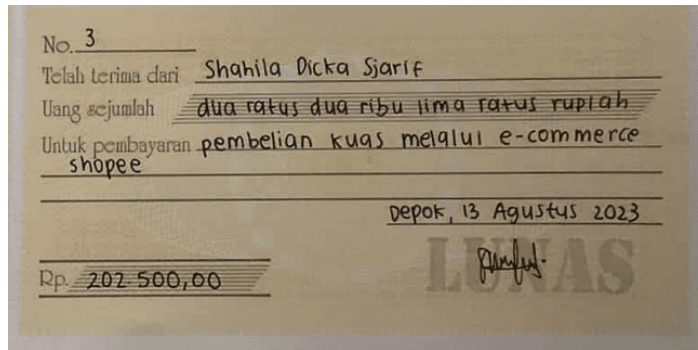 No. 3
Telah terima dari Shahila Dicka Sjarif
Uang sejumlah dua ratus dua ribu lima ratus rupiah
Untuk pembayaran pembelian kuas melalui e-commerce
shopee
Depok, 13 Agustus 2023
LUNAS
Rp. 202.500,00